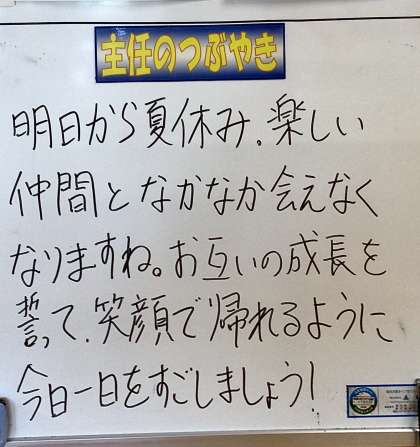 主任のつぶやき
明日から夏休み.楽しい
仲間となかなか会えなく
なりますね。お互いの成長を
誓って.笑顔で帰れるように
今日一日をすごしましょう!